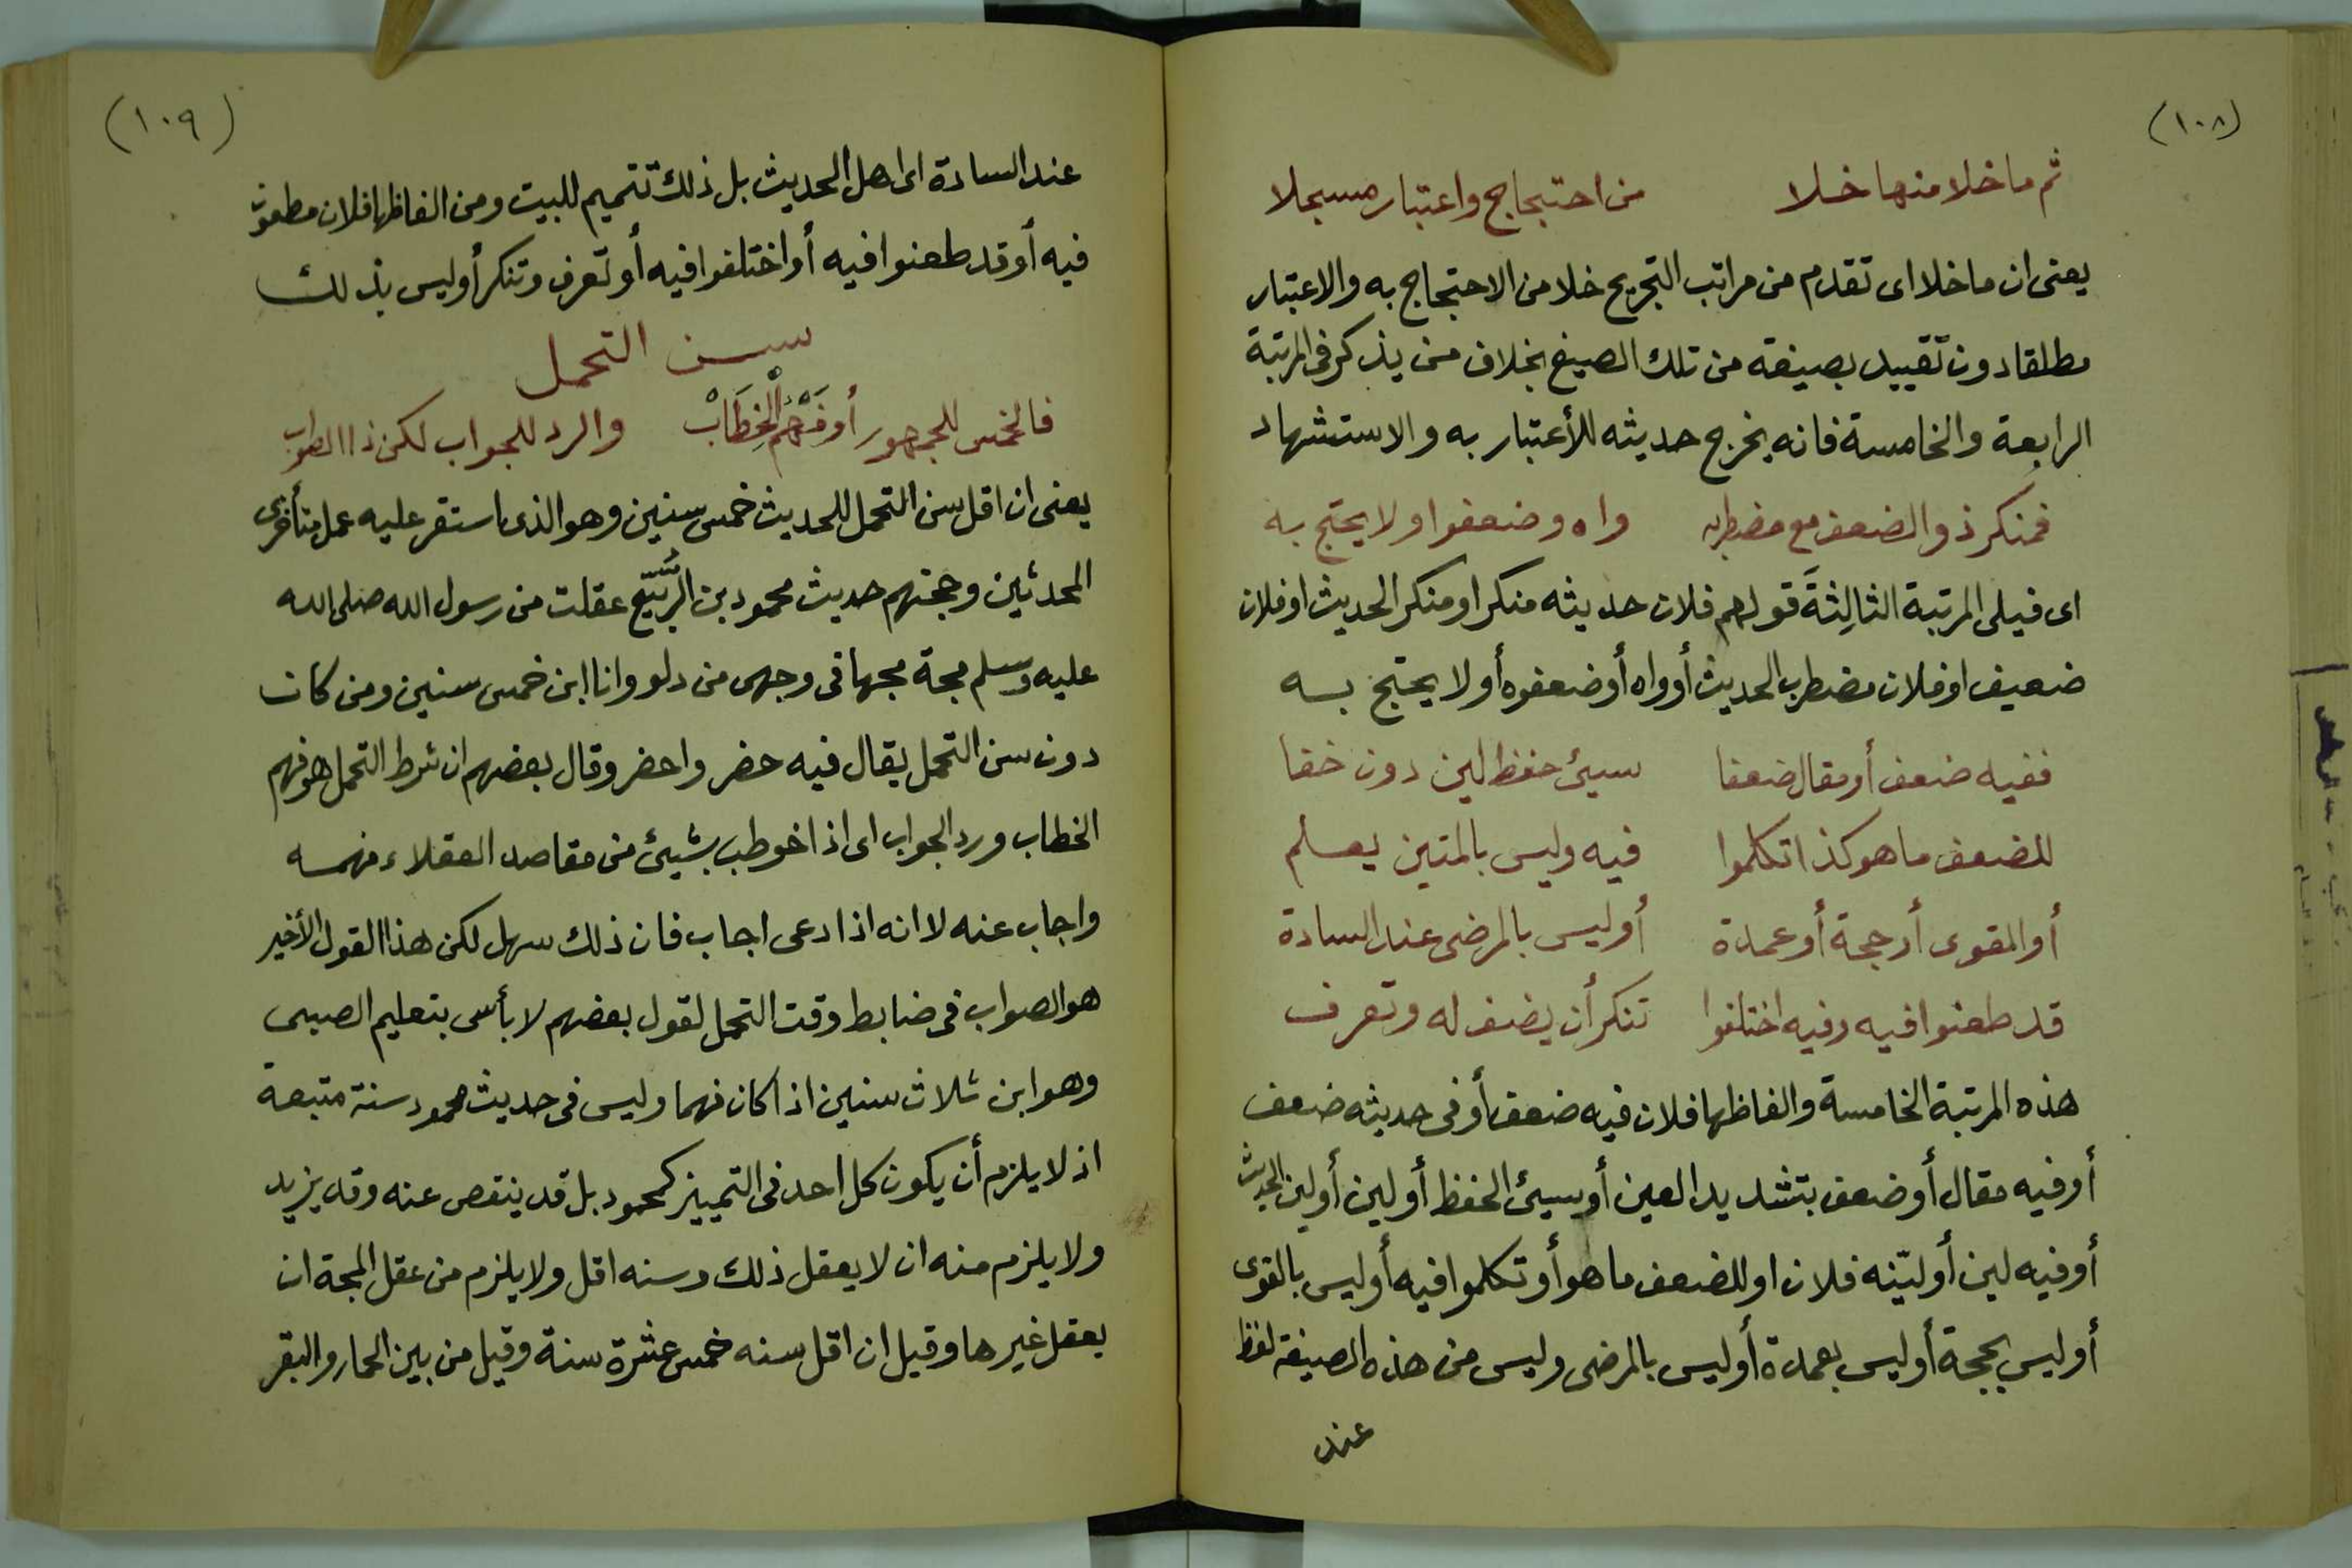 (١٠٨)
ثم ما خلا منها خلا من احتجاج واعتبار مسجلا
يعنى ان ما خلا اى تقدم من مراتب التجريح خلا من الاحتجاج به والاعتبار
مطلقا دون تقييد بصيغة من تلك الصيغ بخلاف من يذكر فى المرتبة
الرابعة والخامسة فانه يخرج حديثه للأعتبار به والاستشهاد
فمنكر ذو الضعف مع مضطربه واه وضعفوا ولا يحتج به
اى فيلى المرتبة الثالِثةَ قولهم فلان حديثه منكر او منكر الحديث او فلان
ضعيف او فلان مضطرب الحديث أو واه أو ضعفوه أو لا يحتج به
ففيه ضعف أو مقال ضعفا سيئ حفظ لين دون خفا
للضعف ما هو كذا تكلموا فيه وليس بالمتين يعلم
أو القوى أو حجة أو عمدة أو ليس بالمرضى عند السادة
قد طعنوا فيه وفيه اختلفوا تنكر أن يضف له وتعرف
هذه المرتبة الخامسة والفاظها فلان فيه ضعف أو فى حديثه ضعف
أو فيه مقال أو ضعف بتشديد العين أو سيئ الحفظ أو لين أو لين الحديث
أو فيه لين أو ليّنه فلان او للضعف ما هو أو تكلموا فيه أو ليس بالقوى
أو ليس بحجة أو ليس بعمدة أو ليس بالمرضى وليس من هذه الصيغة لفظ
عند
(١٠٩)
عند السادة اى اهل الحديث بل ذلك تتميم للبيت ومن الفاظها فلان مطعون
فيه أو قد طعنوا فيه أو اختلفوا فيه أو تعرف وتنكر أو ليس بذلك
سن التحمل
فالخمس للجمهور أو فَهْمُ الْخِطَابْ والرد للجواب لكن ذا الصواب
يعنى ان اقل سن التحمل للحديث خمس سنين وهو الذى استقر عليه عمل متأخرى
المحدثين وحجتهم حديث محمود بن الرَّبيع عقلت من رسول الله صلى الله
عليه وسلم مجة مجها فى وجهى من دلو وانا ابن خمس سنين ومن كان
دون سن التحمل يقال فيه حضر واحضر وقال بعضهم ان شرط التحمل هو فهم
الخطاب ورد الجواب اى اذا خوطب بشيئ من مقاصد العقلاء فهمه
واجاب عنه لا انه اذا دعى اجاب فان ذلك سهل لكن هذا القول الأخير
هو الصواب فى ضابط وقت التحمل لقول بعضهم لا بأس بتعليم الصبى
وهو ابن ثلاث سنين اذا كان فهما وليس فى حديث محمود سنة متبعة
اذ لا يلزم أن يكون كل احد فى التمييز كمحمود بل قد ينقص عنه وقد يزيد
ولا يلزم منه ان لا يعقل ذلك وسنه اقل ولا يلزم من عقل المجة ان
يعقل غيرها وقيل ان اقل سنه خمس عشرة سنة وقيل من بين الحمار والبقر